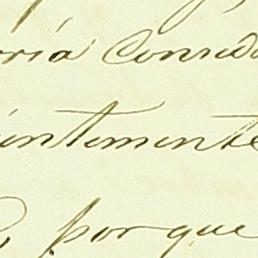 ría Consid
intemente
porque